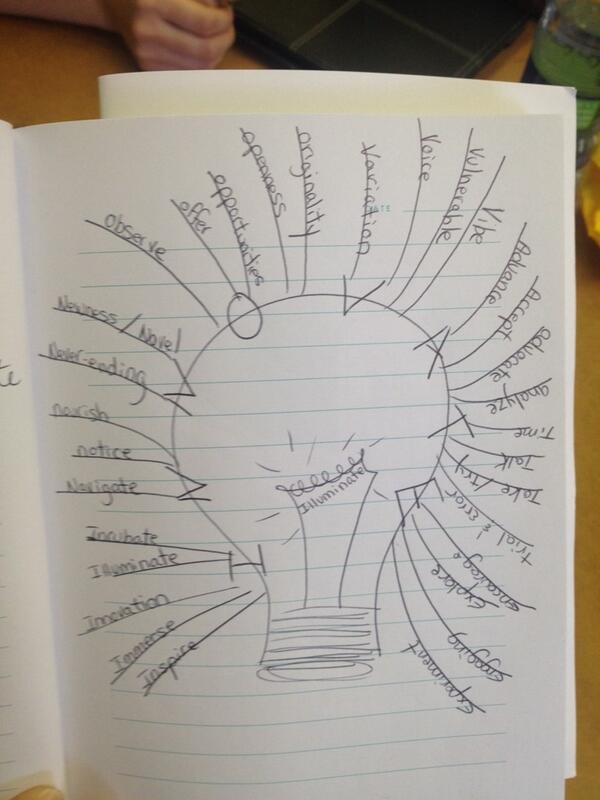 Inspire
Immerse
Innovation
Illuminate
Incubate
I
Navigate
notice
N
nourish
Never-ending
Newness / Novel
N
Observe
offer
opportunities
openness
originality
O
Variation
Voice
Vulnerable
Vibe
V
Advance
Accept
advocate
analyze
A
Time
Talk
Take / try
trial & error
T
encourage
Explore
engaging
Experiment
E
Illuminate